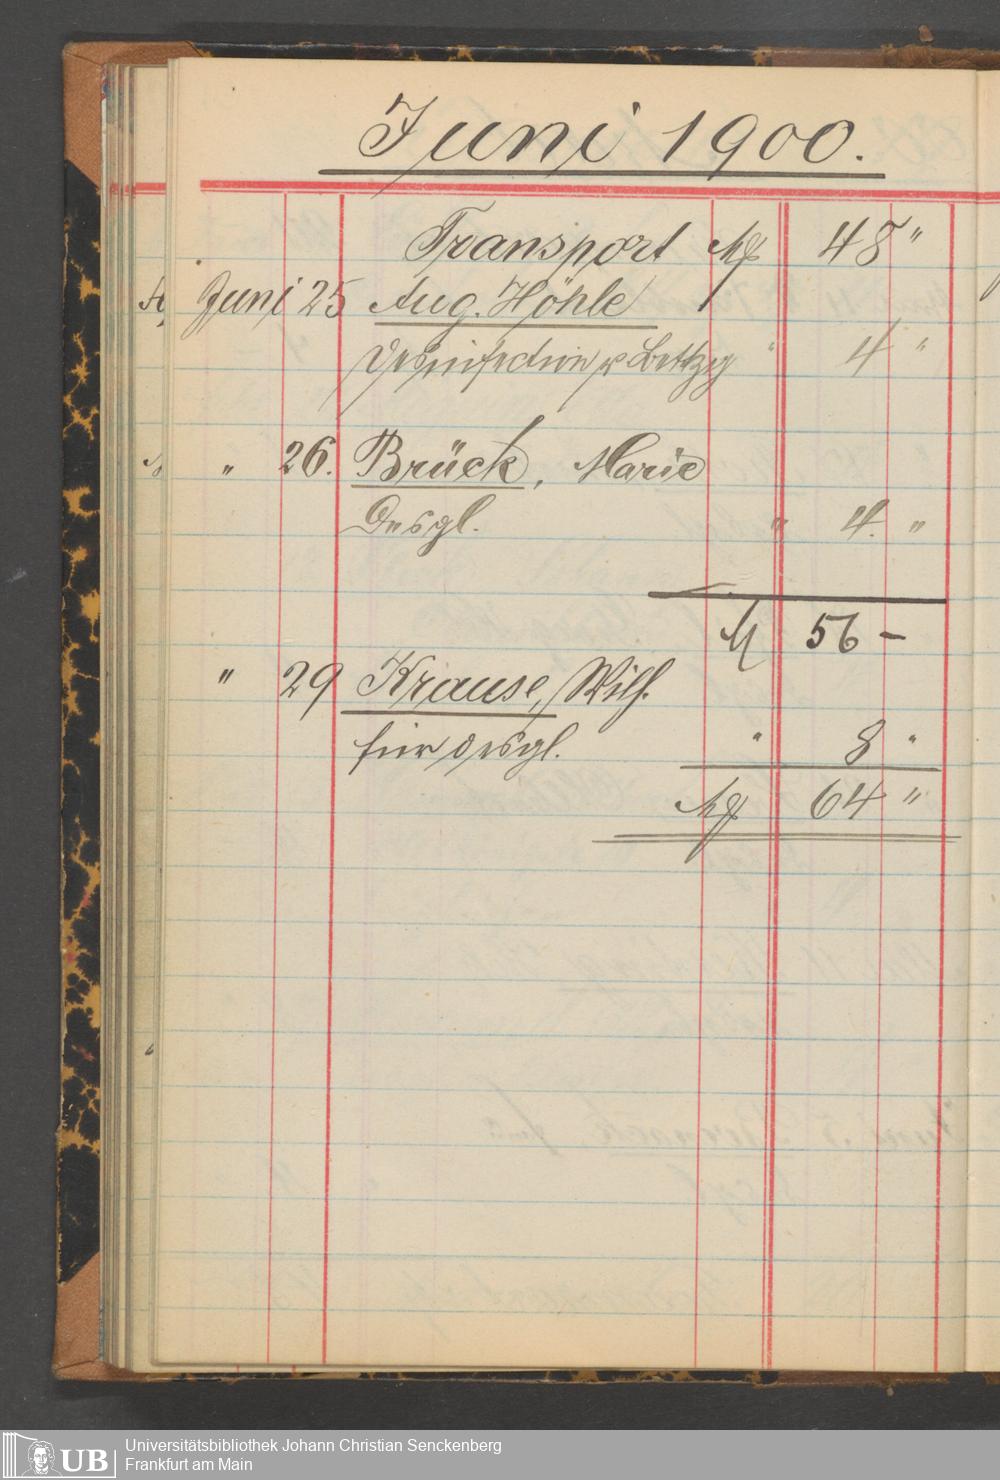 Juni 1900.
Transport M 48 "
Juni 25 Aug. Höhle
Desinfection Bettzg " 4 "
" 26. Brück, Marie
Desgl. " 4. "
M 56 -
" 29 Krause, Wilh.
für desgl. " 8 "
M 64 "
UB
Universitätsbibliothek Johann Christian Senckenberg
Frankfurt am Main